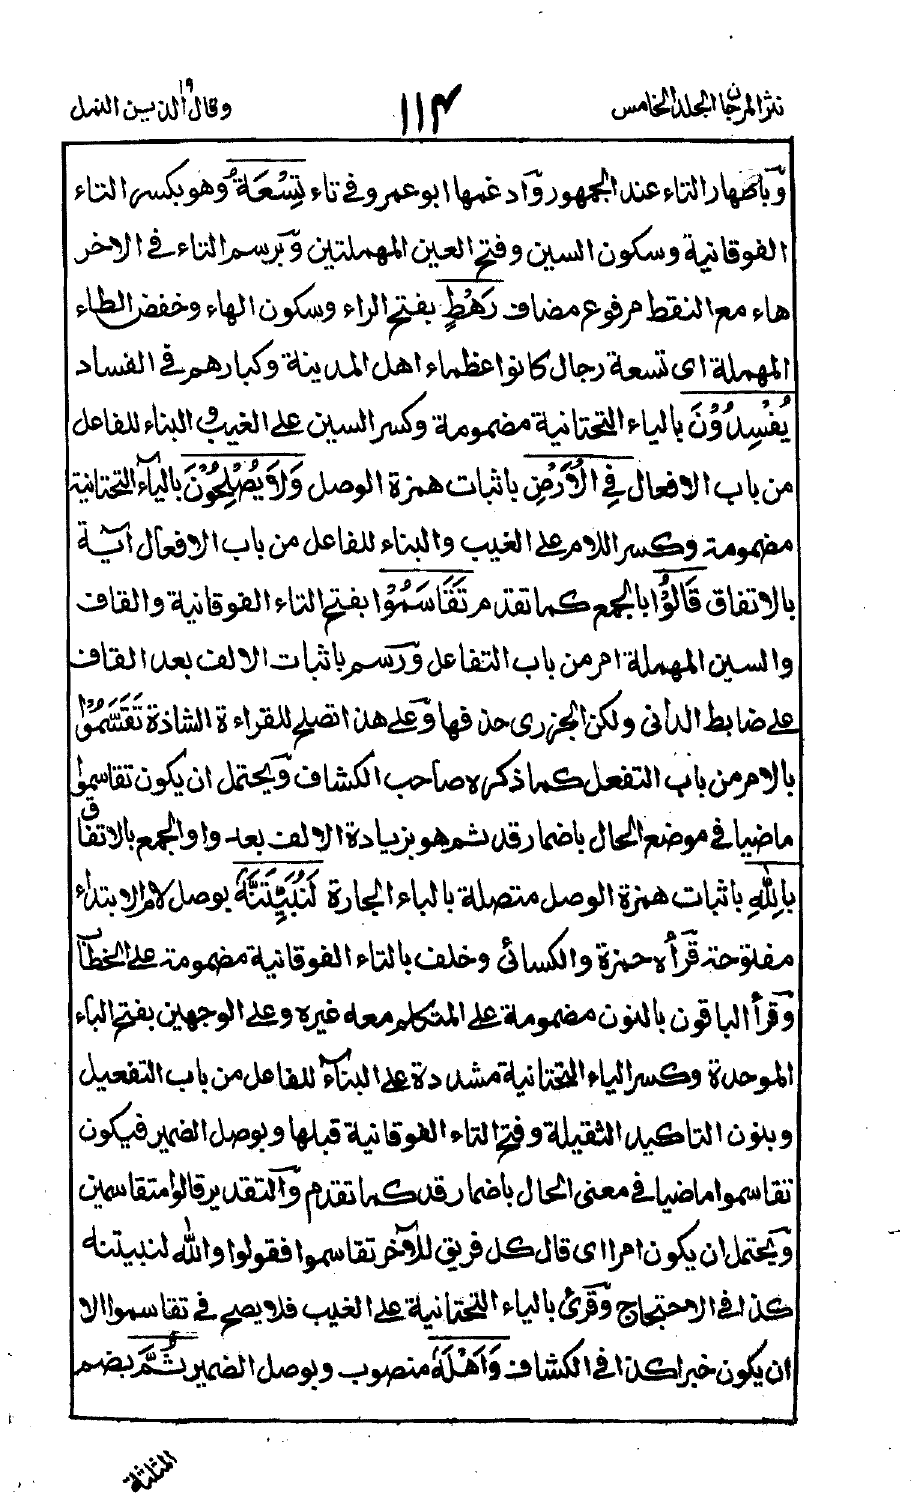 نثر المرجان المجلد الخامس
١١٣
وقال الذين ١٩ النمل
وَباظهار التاء عند الجمهور وَادغمها ابو عمرو فى تاء تِسْعَةُ وهو بكسر التاء
الفوقانية وسكون السين وفتح العين المهملتين وَبرسم التاء فى الاخر
هاء مع النقط مرفوع مضاف رَهْطٍ بفتح الراء وسكون الهاء وخفض الطاء
المهملة اى تسعة رجال كانوا عظماء اهل المدينة وكبارهم فى الفساد
يُفْسِدُوْنَ بالياء التحتانية مضمومة وكسر السين على الغيب والبناء للفاعل
من باب الافعال فِى الْاَرْضِ باثبات همزة الوصل وَلَا يُصْلِحُوْنَ بالياء التحتانية
مضمومة وكسر اللام على الغيب والبناء للفاعل من باب الافعال آية
بالاتفاق قَالُوْا بالجمع كما تقدم تَقَاسَمُوْا بفتح التاء الفوقانية والقاف
والسين المهملة امر من باب التفاعل وَرسم باثبات الالف بعد القاف
على ضابط الدانى ولكن الجزرى حذفها وَعلى هذا تصلح للقراءة الشاذة تَقَسَّمُوْا
بالامر من باب التفعل كما ذكره صاحب الكشاف وَيحتمل ان يكون تقاسموا
ماضيا فى موضع الحال باضمار قد ثم هو بزيادة الالف بعد واو الجمع بالاتفاق
بِاللّٰهِ باثبات همزة الوصل متصلة بالباء الجارة لَنُبَيِّتَنَّهٗ بوصل لام الابتداء
مفتوحة قَرأه حمزة والكسائى وخلف بالتاء الفوقانية مضمومة على الخطاب
وَقرأ الباقون بالنون مضمومة على المتكلم معه غيره وعلى الوجهين بفتح الباء
الموحدة وكسر الياء التحتانية مشددة على البناء للفاعل من باب التفعيل
وبنون التاكيد الثقيلة وفتح التاء الفوقانية قبلها وبوصل الضمير فيكون
تقاسموا ماضيا فى معنى الحال باضمار قد كما تقدم وَالتقدير قالوا متقاسمين
وَيحتمل ان يكون امرا اى قال كل فريق للآخر تقاسموا فقولوا والله لنبيتنه
كذا فى الاحتجاج وَقرئ بالياء التحتانية على الغيب فلا يصح فى تقاسموا الا
ان يكون خبرا كذا فى الكشاف وَاَهْلَهٗ منصوب وبوصل الضمير ثُمَّ بضم
المثلثة